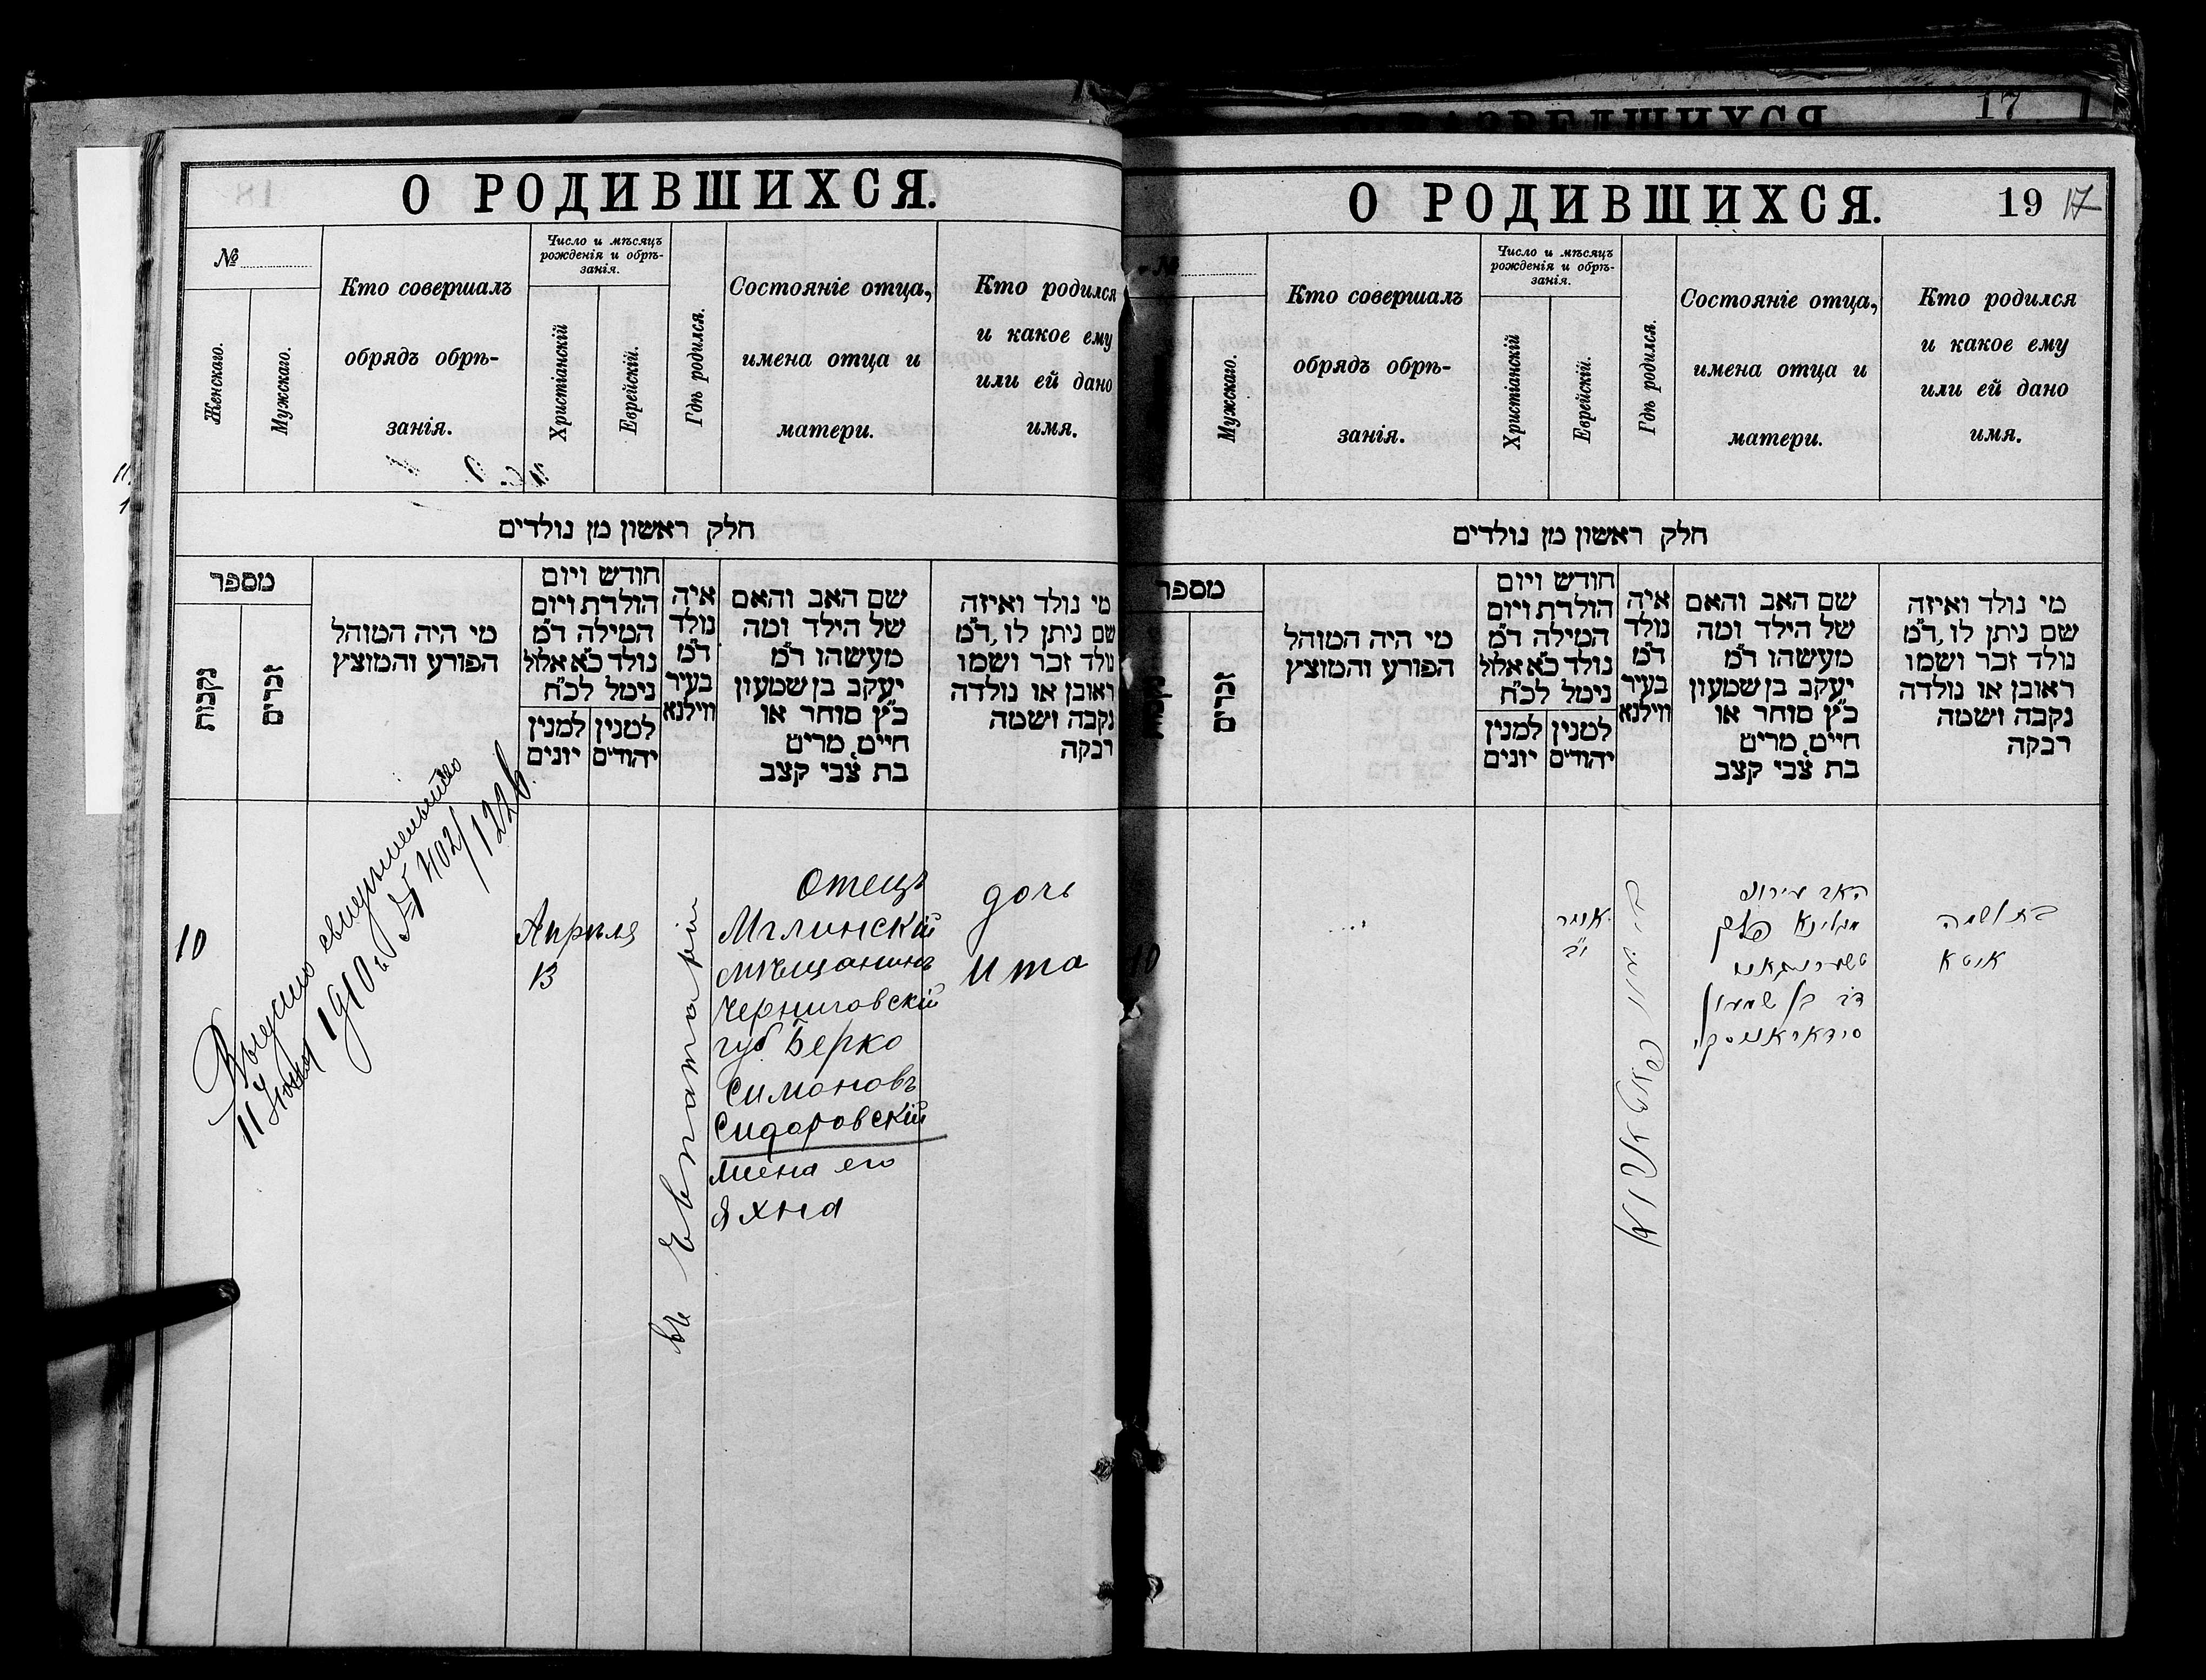 17
О РОДИВШИХСЯ.
№
Женскаго.
Мужскаго.
Кто совершалъ
обрядъ обрѣ-
занія.
Число и мѣсяцъ
рожденія и обрѣ-
занія.
Христіанскій
Еврейскій.
Гдѣ родился.
Состояніе отца,
имена отца и
матери.
Кто родился
и какое ему
или ей дано
имя.
חלק ראשון מן נולדים
מספר
נקבות
זכרים
מי היה המוהל
הפורע והמוצץ
חודש ויום
הולדת ויום
המילה ד"מ
נולד כ"א אלול
נימל לכ"ח
למנין יהודים
למנין יונים
איה
נולד
ד"מ
בעיר
ווילנא
שם האב והאם
של הילד ומה
מעשהו ד"מ
יעקב בן שמעון
כ"ץ סוחר או
חיים, מרים
בת צבי קצב
מי נולד ואיזה
שם ניתן לו, ד"מ
נולד זכר ושמו
ראובן או נולדה
נקבה ושמה
רבקה
10
Выдано свидѣтельство
11 1910 г. № 402/1226.
Апрѣля
13
въ Евпаторіи
Отецъ
Мглинскій
мѣщанинъ
Черниговскій
губ. Берко
Симоновъ
Сидоровскій
жена его
Яхна
дочь
Ита
О РОДИВШИХСЯ.
19 17
№
Мужскаго.
Кто совершалъ
обрядъ обрѣ-
занія.
Число и мѣсяцъ
рожденія и обрѣ-
занія.
Христіанскій
Еврейскій.
Гдѣ родился.
Состояніе отца,
имена отца и
матери.
Кто родился
и какое ему
или ей дано
имя.
חלק ראשון מן נולדים
מספר
נקבות
זכרים
מי היה המוהל
הפורע והמוצץ
חודש ויום
הולדת ויום
המילה ד"מ
נולד כ"א אלול
נימל לכ"ח
למנין יהודים
למנין יונים
איה
נולד
ד"מ
בעיר
ווילנא
שם האב והאם
של הילד ומה
מעשהו ד"מ
יעקב בן שמעון
כ"ץ סוחר או
חיים, מרים
בת צבי קצב
מי נולד ואיזה
שם ניתן לו, ד"מ
נולד זכר ושמו
ראובן או נולדה
נקבה ושמה
רבקה
10
האב
מגלינא פלך
דב בן שמעון
סידאראווסקי
בת ושמה
איטא